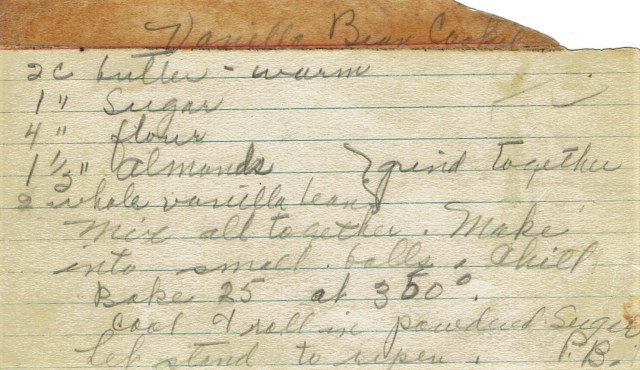 Vanilla Bean Cookie
2 c butter - warm
1 " Sugar
4 " flour
1 1/3 " almonds } grind together
2 whole vanilla bean
Mix all together. Make
into small balls & Chill
Bake 25 at 350°.
Cool & roll in powdered Sugar
Let stand to ripen. P.B.